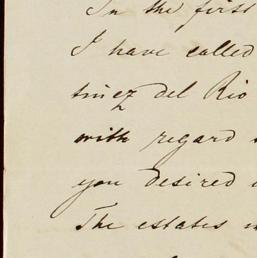 In the first
I have called
tinez del Rio
with regard
you desired
The estates